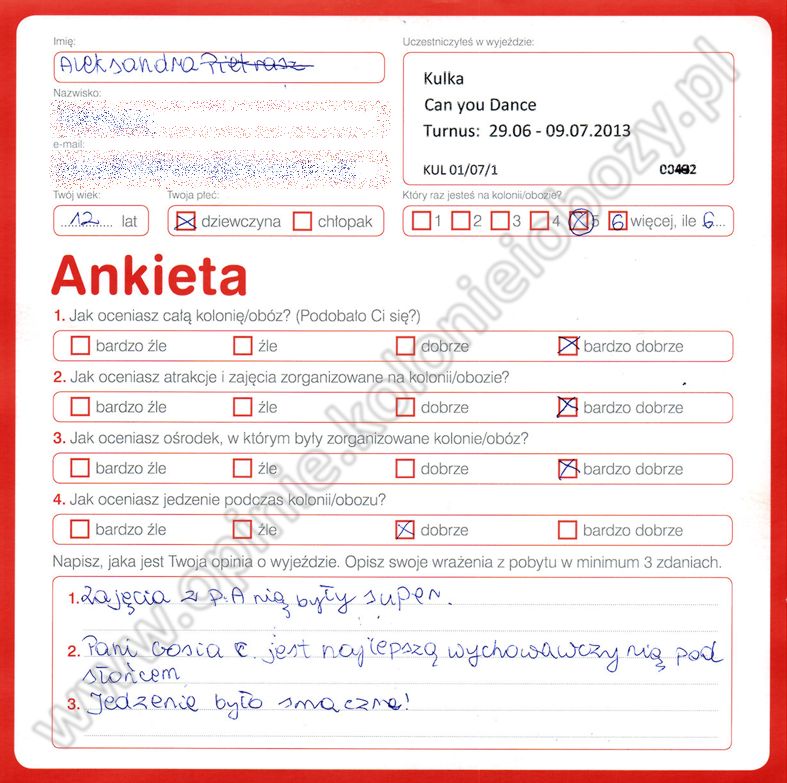 Imię:
Aleksandra Pietrasz
Nazwisko:
e-mail:
Twój wiek:
12 lat
Twoja płeć:
dziewczyna chłopak
Uczestniczyłeś w wyjeździe:
Kulka
Can you Dance
Turnus: 29.06 - 09.07.2013
KUL 01/07/1
Który raz jesteś na kolonii/obozie?
1 2 3 4 5 6 więcej, ile 6
Ankieta
1. Jak oceniasz całą kolonię/obóz? (Podobało Ci się?)
bardzo źle źle dobrze bardzo dobrze
2. Jak oceniasz atrakcje i zajęcia zorganizowane na kolonii/obozie?
bardzo źle źle dobrze bardzo dobrze
3. Jak oceniasz ośrodek, w którym były zorganizowane kolonie/obóz?
bardzo źle źle dobrze bardzo dobrze
4. Jak oceniasz jedzenie podczas kolonii/obozu?
bardzo źle źle dobrze bardzo dobrze
Napisz, jaka jest Twoja opinia o wyjeździe. Opisz swoje wrażenia z pobytu w minimum 3 zdaniach.
1. Zajęcia z p. Anią były super.
2. Pani Gosia C. jest najlepszą wychowawczynią pod
słońcem
3. Jedzenie było smaczne!
www.opinie.kolonieiobozy.pl